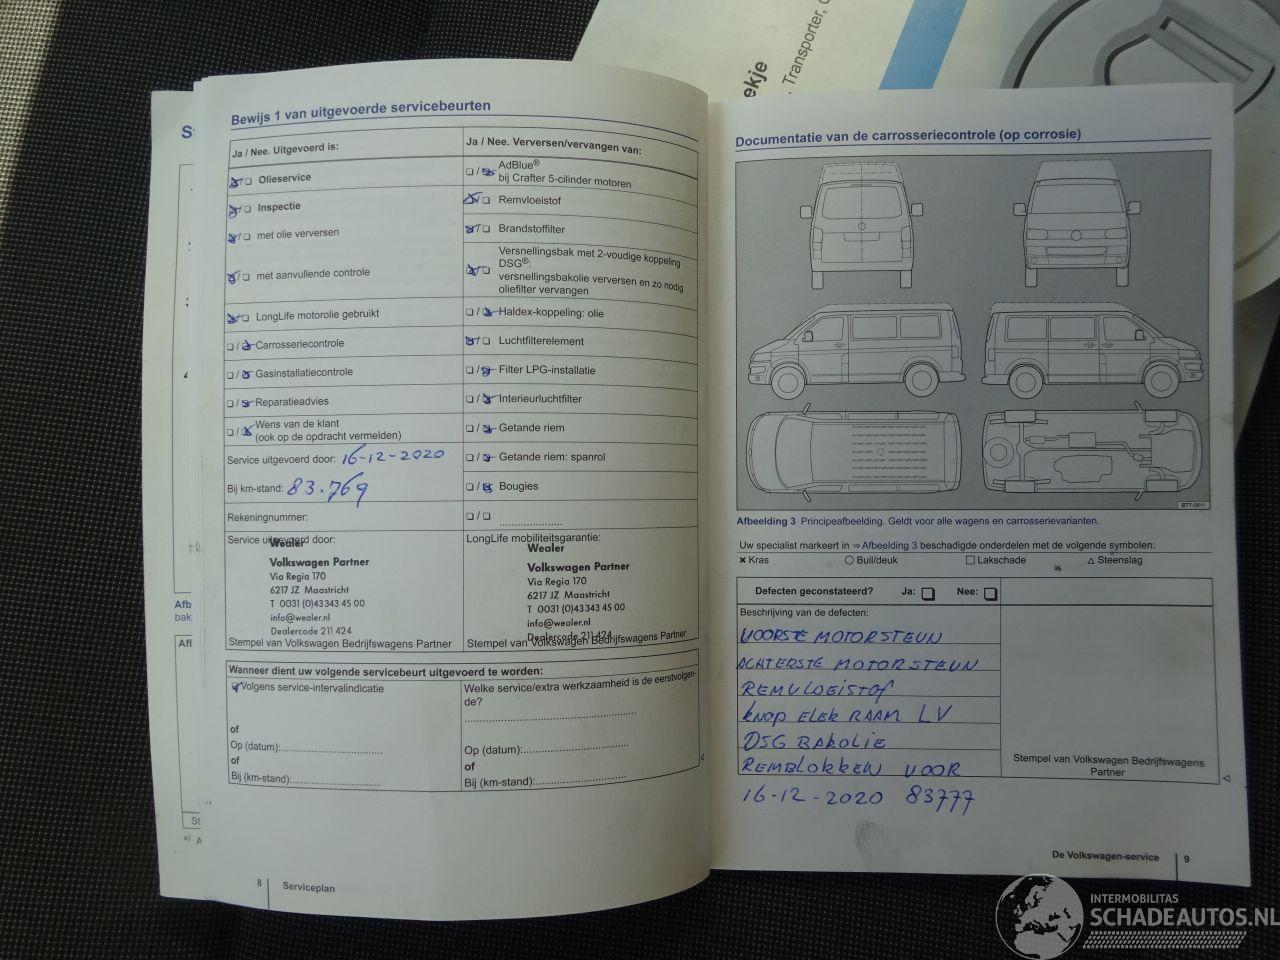 ekje
Transporter,
Bewijs 1 van uitgevoerde servicebeurten
Ja / Nee. Uitgevoerd is:
Olieservice
Inspectie
met olie verversen
met aanvullende controle
LongLife motorolie gebruikt
Carrosseriecontrole
Gasinstallatiecontrole
Reparatieadvies
Wens van de klant
(ook op de opdracht vermelden)
Service uitgevoerd door: 16-12-2020
Bij km-stand: 83.769
Rekeningnummer:
Service uitgevoerd door:
Wealer
Volkswagen Partner
Via Regia 170
6217 JZ Maastricht
T 0031 (0)43 343 45 00
info@wealer.nl
Dealercode 211 424
Stempel van Volkswagen Bedrijfswagens Partner
Ja / Nee. Verversen/vervangen van:
AdBlue®
bij Crafter 5-cilinder motoren
Remvloeistof
Brandstoffilter
Versnellingsbak met 2-voudige koppeling
DSG®:
versnellingsbakolie verversen en zo nodig
oliefilter vervangen
Haldex-koppeling: olie
Luchtfilterelement
Filter LPG-installatie
Interieurluchtfilter
Getande riem
Getande riem: spanrol
Bougies
LongLife mobiliteitsgarantie:
Wealer
Volkswagen Partner
Via Regia 170
6217 JZ Maastricht
T 0031 (0)43 343 45 00
info@wealer.nl
Dealercode 211 424
Stempel van Volkswagen Bedrijfswagens Partner
Wanneer dient uw volgende servicebeurt uitgevoerd te worden:
Volgens service-intervalindicatie
of
Op (datum):
of
Bij (km-stand):
Welke service/extra werkzaamheid is de eerstvolgen-
de?
Op (datum):
of
Bij (km-stand):
8 Serviceplan
Documentatie van de carrosseriecontrole (op corrosie)
B7T-0611
Afbeelding 3 Principeafbeelding. Geldt voor alle wagens en carrosserievarianten.
Uw specialist markeert in ⇒ Afbeelding 3 beschadigde onderdelen met de volgende symbolen:
× Kras ○ Buil/deuk □ Lakschade △ Steenslag
Defecten geconstateerd? Ja: Nee:
Beschrijving van de defecten:
VOORSTE MOTORSTEUN
ACHTERSTE MOTORSTEUN
REMVLOEISTOF
KNOP ELEK RAAM LV
DSG BAKOLIE
REMBLOKKEN VOOR
16-12-2020 83777
Stempel van Volkswagen Bedrijfswagens
Partner
De Volkswagen-service 9
INTERMOBILITAS
SCHADEAUTOS.NL